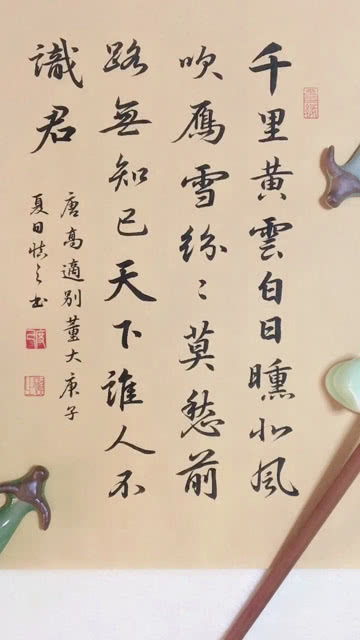 千里黄雲白日曛北風
吹鴈雪紛〻莫愁前
路無知己天下誰人不
識君
唐高適別董大庚子
夏日慎之书